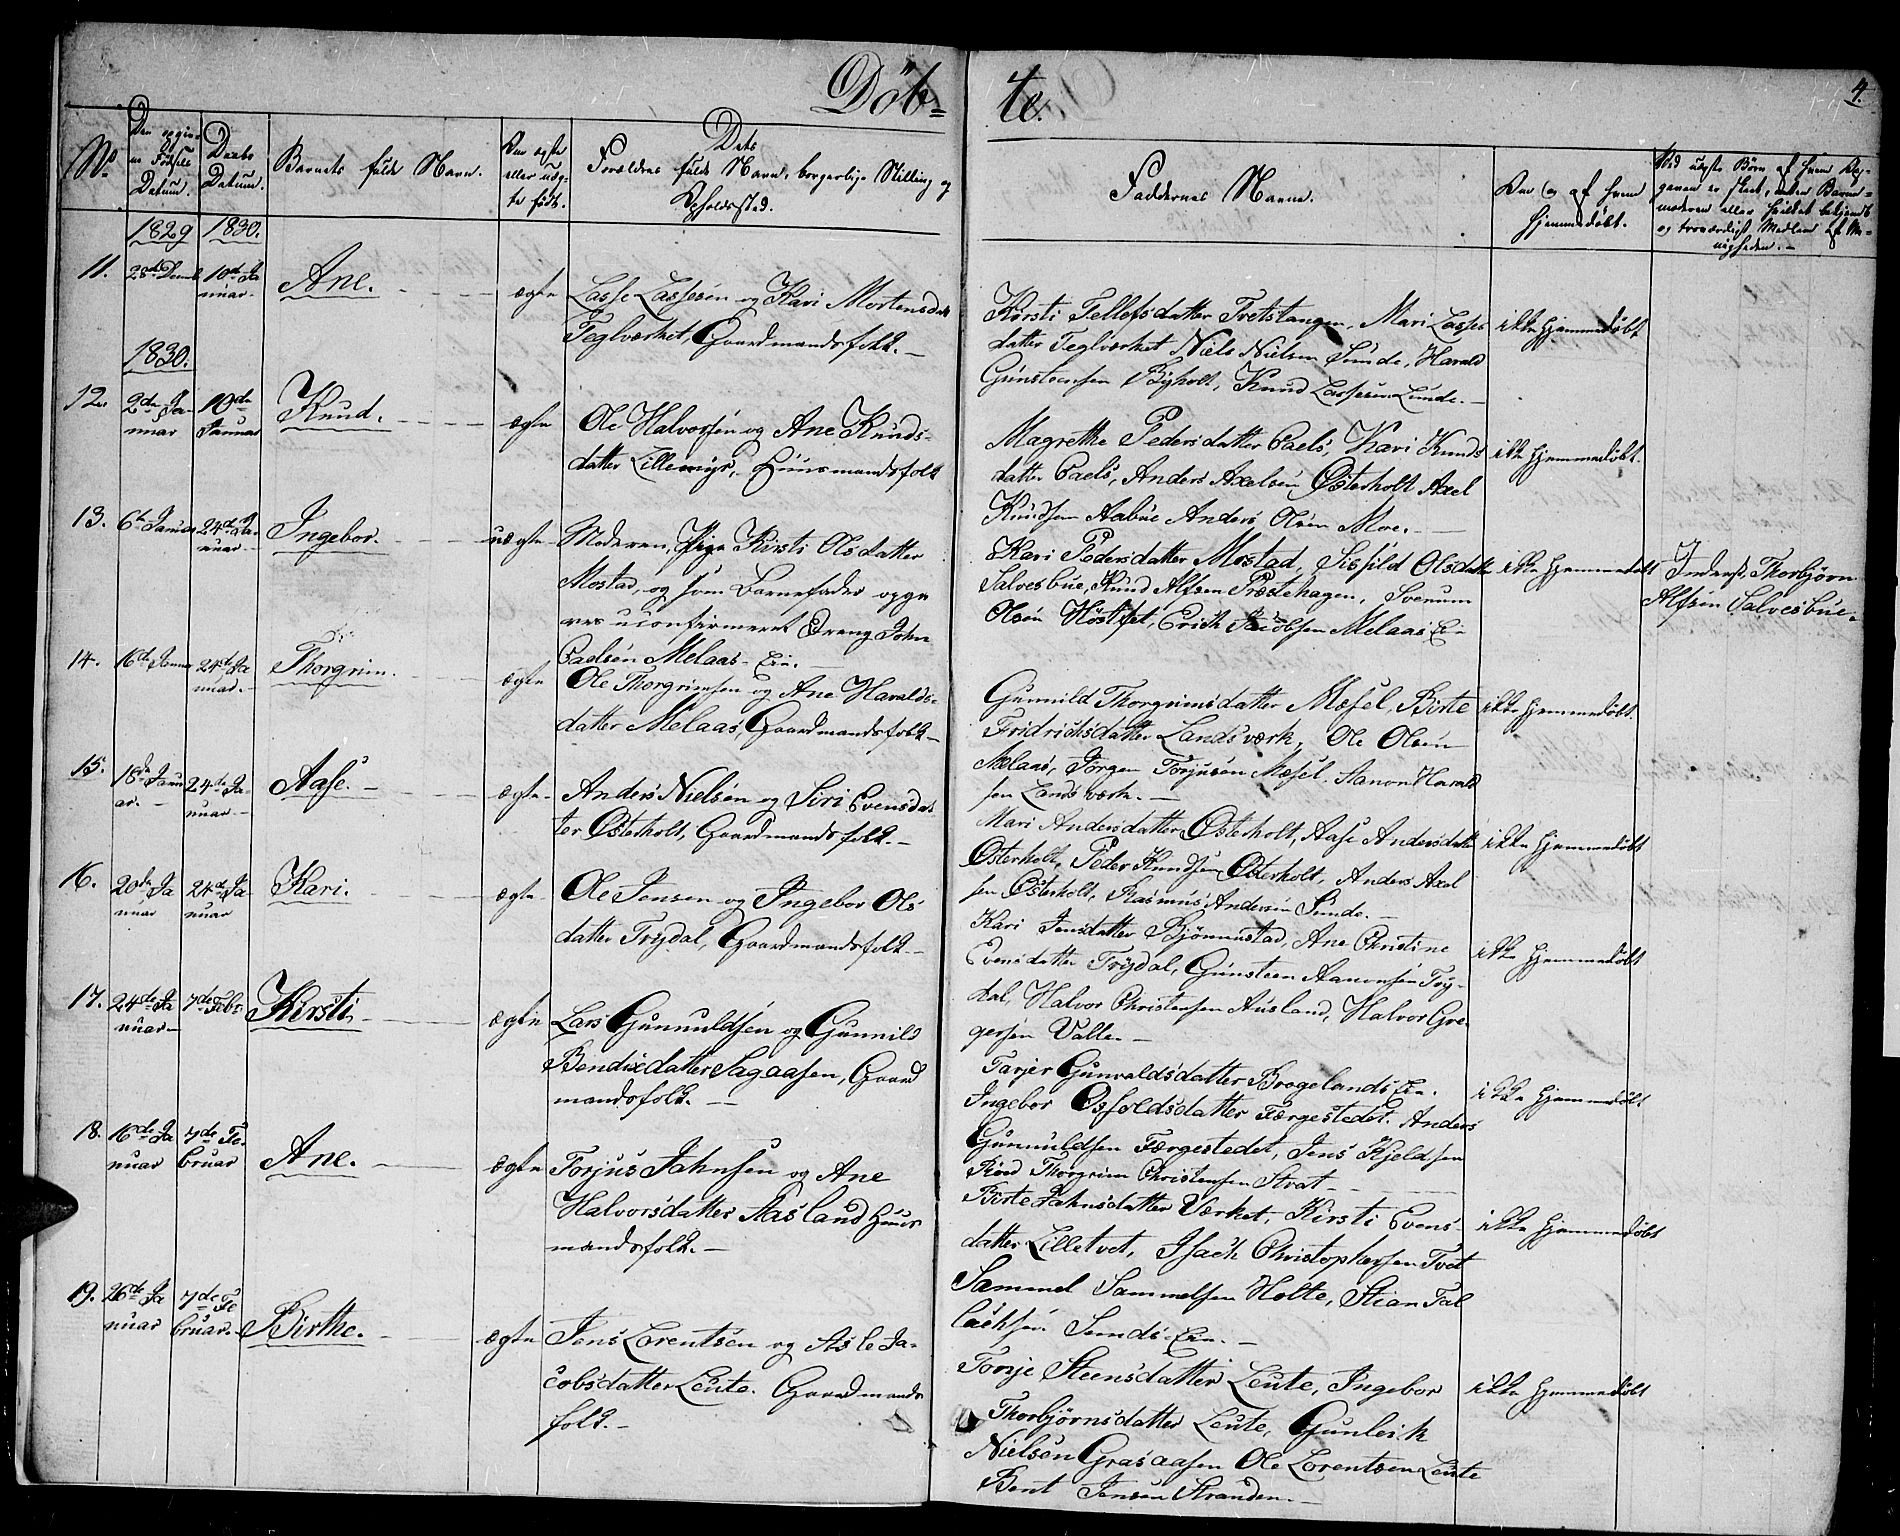 Döb-
te.
4.
No
Den opgivne Fødsels Datum.
Daabs Datum.
Barnets fulde Navn.
Om ægte eller uægte født.
Dets Forældres fulde Navn, borgerlige Stilling og Opholdssted.
Faddernes Navne.
Om og af hvem hjemmedøbt.
1829 1830.
11. 28de Decemb 10de Januar. Ane. ægte
Lasse Lassesen og Kari Mortensdat
Teglværket, Gaardmandsfolk.
Kirsti Tellefsdatter Tvetstangen, Mari Lasses
datter Teglværket Niels Nielsen Sunde, Harald
Günsteensen Bÿholt, Knud Lassesen Lunde.
ikke hjemmedøbt
1830.
12. 2de Januar 10de Januar Knud. ægte
Ole Halvorsen og Ane Knuds-
datter Lillemÿr, Huusmandsfolk
Magrethe Pedersdatter Caels, Kari Knuds
datter Caels, Anders Axelsen Østerholt Axel
Knudsen Aabue Anders Olsen Moe.
ikke hjemmedøbt.
13. 6te Januar 24de Januar Ingebor. uægte
Moderen, Pige Kirsti Olsdatter
Mostad, og som Barnefader opgi
ves uconfirmeret Dreng John
Caelsen Melaas-Eie.
Kari Pedersdatter Mostad, Sisfild Olsdatter
Salvesbue, Knud Alfsen Præstehagen, Svenum
Olsen Høstfet, Erich Jacobsen Melaas Ei-
ikke hjemmedøbt
Inderst, Thorbjørn
Alfsen Salvesbue.
14. 16de Januar 24de Januar. Thorgrim. ægte
Ole Thorgrimsen og Ane Haralds-
datter Melaas, Gaardmandsfolk
Gunnild Thorgrimsdatter Mæsel, Birte
Fridrichsdatter Landsværk, Ole Olsen
Melaas, Jørgen Torjusen Mæsel. Aanon Harald
sen Landsværk.
ikke hjemmedøbt.
15. 18de Januar. 24de Januar Aase. ægte
Anders Nielsen og Siri Evensdat
ter Østerholt, Gaardmandsfolk.
Mari Andersdatter Østerholt, Aase Andersdatter
Østerholt, Peder Knudsen Østerholt, Anders Axel
sen Østerholt, Rasmus Andersen Sunde.
ikke hjemmedøbt
16. 20de Januar 24de Januar Kari. ægte
Ole Jensen og Ingebor Ols
datter Trÿdal, Gaardmandsfolk.
Kari Jensdatter Bjönnestad, Ane Christine
Evensdatter Trÿdal, Günsteen Aanonsen Trÿ-
dal, Halvor Christensen Ausland, Halvor Gre-
gersen Valle.
ikke hjemmedøbt
17. 24de Januar 7de Febr. Kirsti ægte
Lars Gunnuldsen og Gunnild
Bendixdatter Sagaasen, Gaard
mandsfolk.
Tarjer Gunvaldsdatter Brogelands Ei-
Ingebor Osfoldsdatter Færgestedet. Anders
Gunnuldsen Færgestedet, Jens Kjeldsen
Röed Thorgrim Christensen Strat
ikke hjemmedøbt
18. 16de Januar 7de Februar Ane. ægte
Torjus Jahnsen og Ane
Halvorsdatter Aasland Huus
mandsfolk.
Birte Jahnsdatter Værket, Kirsti Evens
datter Lilletvet, Isach Christophersen Tvet
Sammel Sammelsen Holte, Stian Tal
lachsen Sunds-Eie.
ikke hjemmedøbt
19. 26de Januar 7de Februar. Birthe. ægte
Jens Lorentsen og Asle Ja-
cobsdatter Leute. Gaardmands
folk.
Torje Steensdatter Leute, Ingebor
Thorbjørnsdatter Leute, Gunleik
Nielsen Grasaasen Ole Lorentsen Leute
Bent Jensen Stranden.
ikke hjemmedøbt